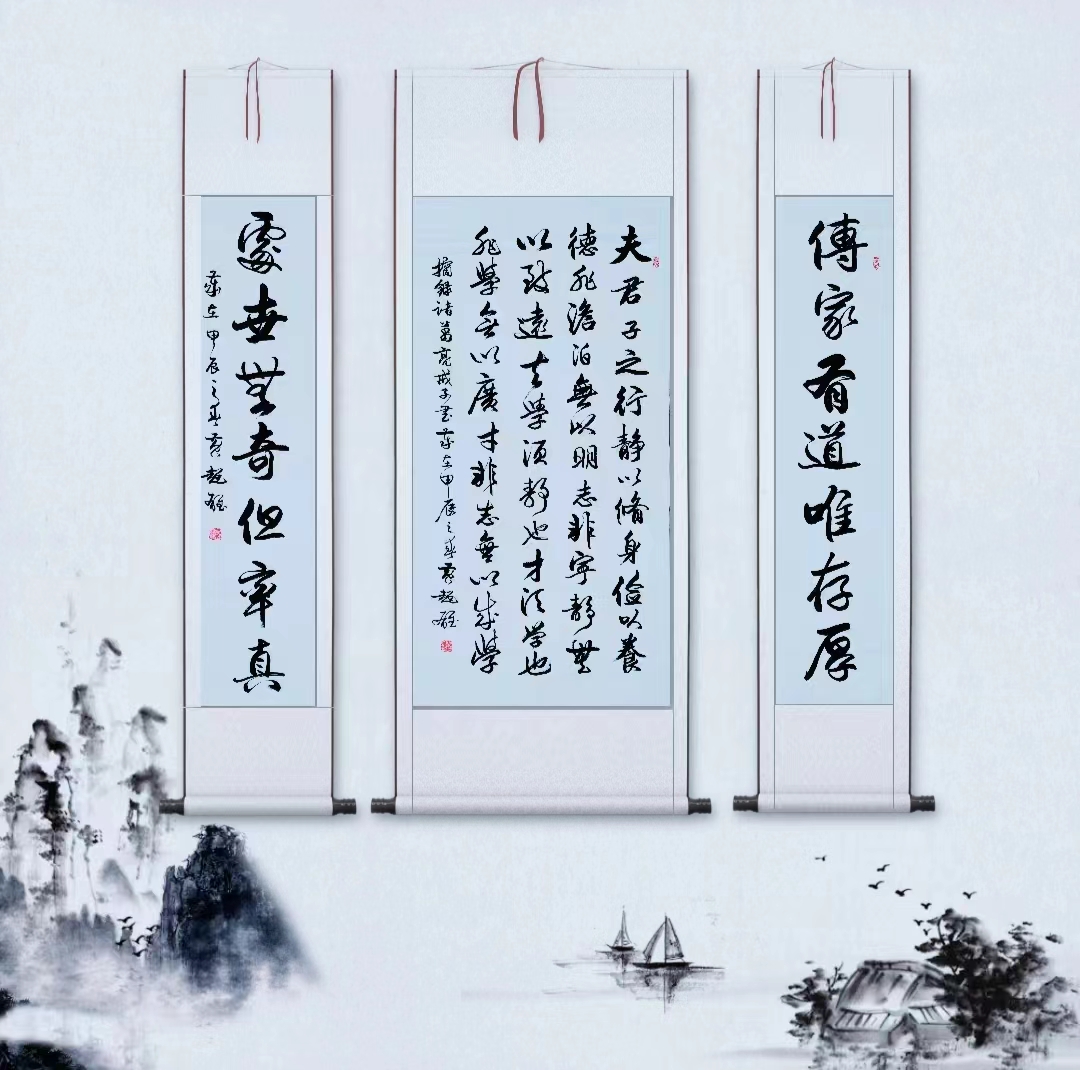 傳家有道唯存厚
夫君子之行静以脩身儉以養
德非澹泊無以明志非寧靜無
以致遠夫學須靜也才須学也
非學無以廣才非志無以成學
摘錄諸葛亮戒子書歲在甲辰之春
處世無奇但率真
歲在甲辰之春